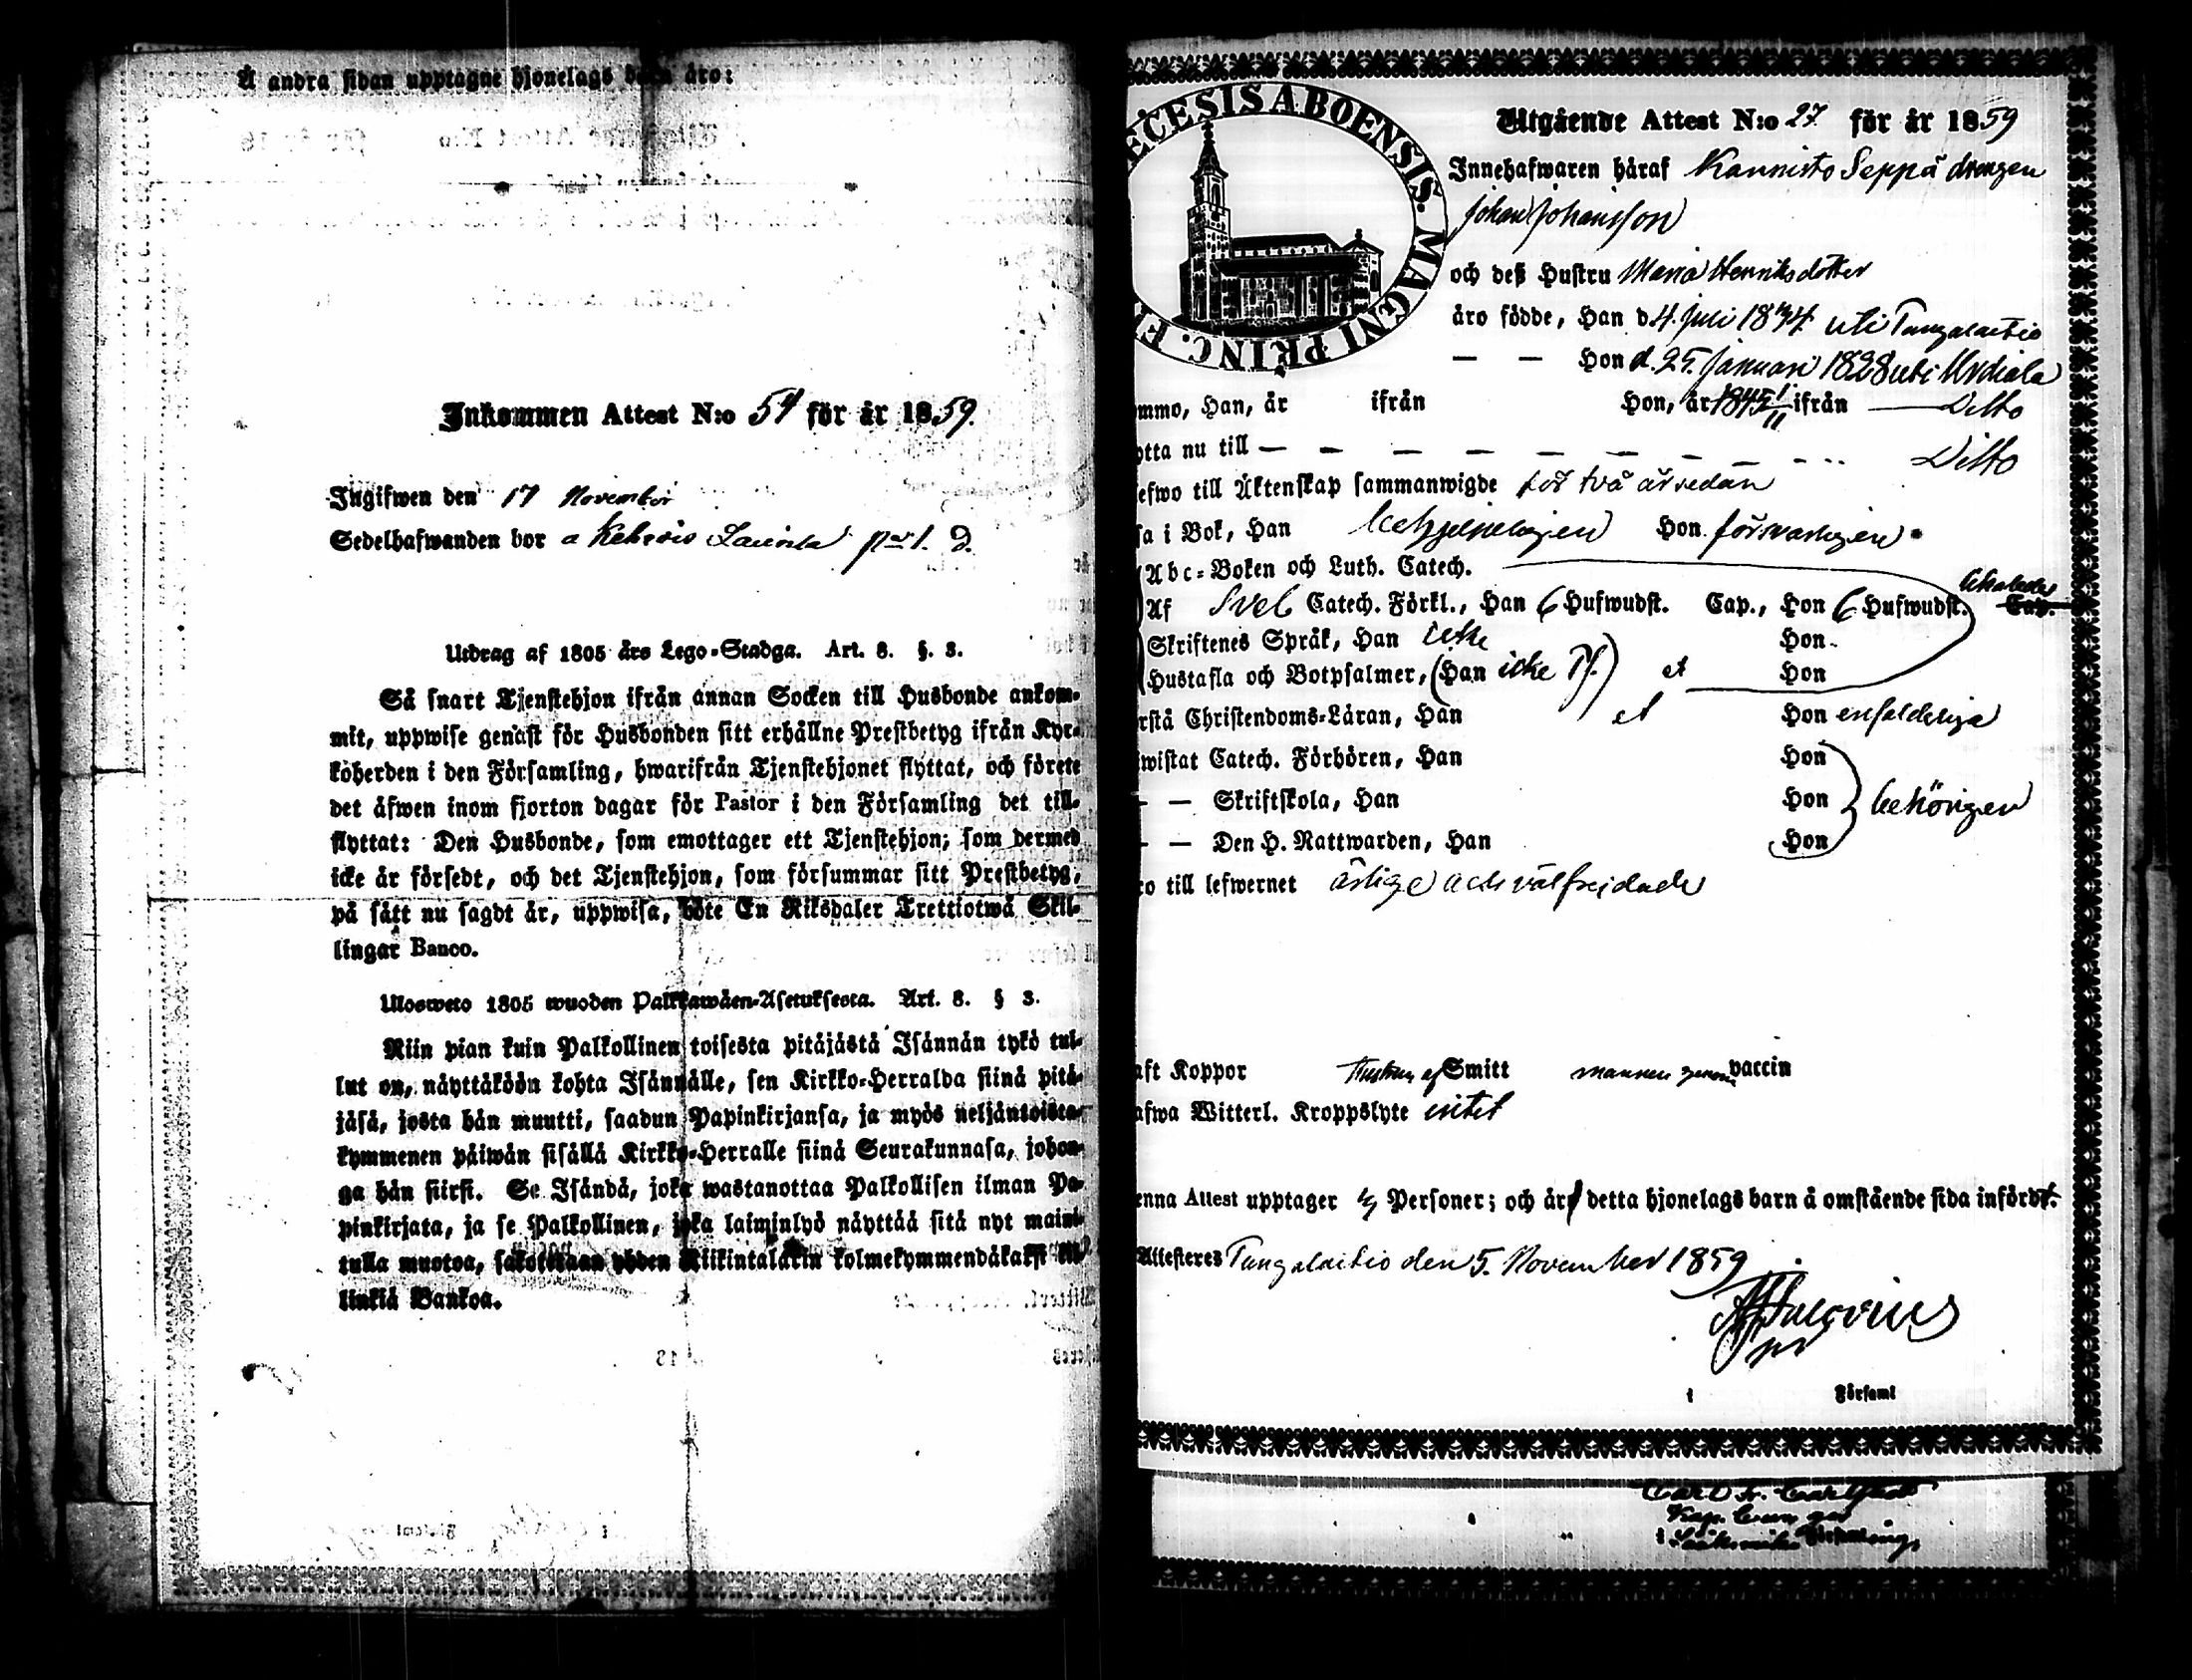 Å andra sidan upptagne hjonelags barn äro:
Inkommen Attest N:o 54 för år 1859.
Ingifwen den 17 November
Sedelhafwanden bor
Utdrag af 1805 års Lego-Stadga. Art. 8. §. 3.
Så snart Tjenstehjon ifrån annan Socken till Husbonde ankom-
mit, uppwise genast för Husbonden sitt erhållne Prestbetyg ifrån Kyr-
koherden i den Församling, hwarifrån Tjenstehjonet flyttat, och förete
det äfwen inom fjorton dagar för Pastor i den Församling det till-
flyttat: Den Husbonde, som emottager ett Tjenstehjon; som dermed
icke är försedt, och det Tjenstehjon, som försummar sitt Prestbetyg,
på sätt nu sagdt är, uppwisa, böte En Riksdaler Trettiotwå Skil-
lingar Banco.
Ulosweto 1805 wuoden Palkkawäen-Asetuksesta. Art. 8. § 3.
Niin pian kuin Palkollinen toisesta pitäjästä Isännän tykö tul-
lut on, näyttäköön kohta Isännälle, sen Kirkko-Herralda siinä pitä-
jäsä, josta hän muutti, saadun Papinkirjansa, ja myös neljäntoista-
kymmenen päiwän sisällä Kirkko-Herralle siinä Seurakunnasa, johon-
ga hän siirsi. Se Isändä, joka wastanottaa Palkollisen ilman Pa-
pinkirjata, ja se Palkollinen, joka laiminlyö näyttää sitä nyt maini-
tulla muotoa, sakotetaan yhden Riikintalarin kolmekymmendäkaksi kil-
linkiä Bankoa.
ECESIS ABOENSIS. MAGNI PRINC. F
Utgående Attest N:o 27 för år 1859
Innehafwaren häraf Kannisto Seppä drengen
Johan Johansson
och deß Hustru Maria Henriksdotter
äro födde, Han d. 4. Juli 1834 uti Tungalaitio
— — Hon d. 25. Januari 1828 uti Urdiala
ommo, Han, år ifrån Hon, år 1845 1/11 ifrån — Ditto
ytta nu till — — — — — — — Ditto
efwo till Äktenskap sammanwigde för två år sedan
sa i Bok, Han Hon försvarligen
Abc-Boken och Luth. Catech.
Af Svel Catech. Förkl., Han 6 Hufwudst. Cap., Hon 6 Hufwudst. Cap.
Skriftenes Språk, Han icke Hon
Hustafla och Botpsalmer, (Han icke Ps.) et Hon
rstå Christendoms-Läran, Han et Hon enfaldeliga
wistat Catech. Förhören, Han Hon
— — Skriftskola, Han Hon behörigen
— — Den H. Nattwarden, Han Hon
ro till lefwernet ärlige och välfrejdade
aft Koppor Hustrun af Smitt mannen genom vaccin
afwa Witterl. Kroppslyte intet
enna Attest upptager 2 Personer; och är detta hjonelags barn å omstående sida införd
Attesteres Tungalaitio den 5. November 1859
i Församl
Kap.
i Församling